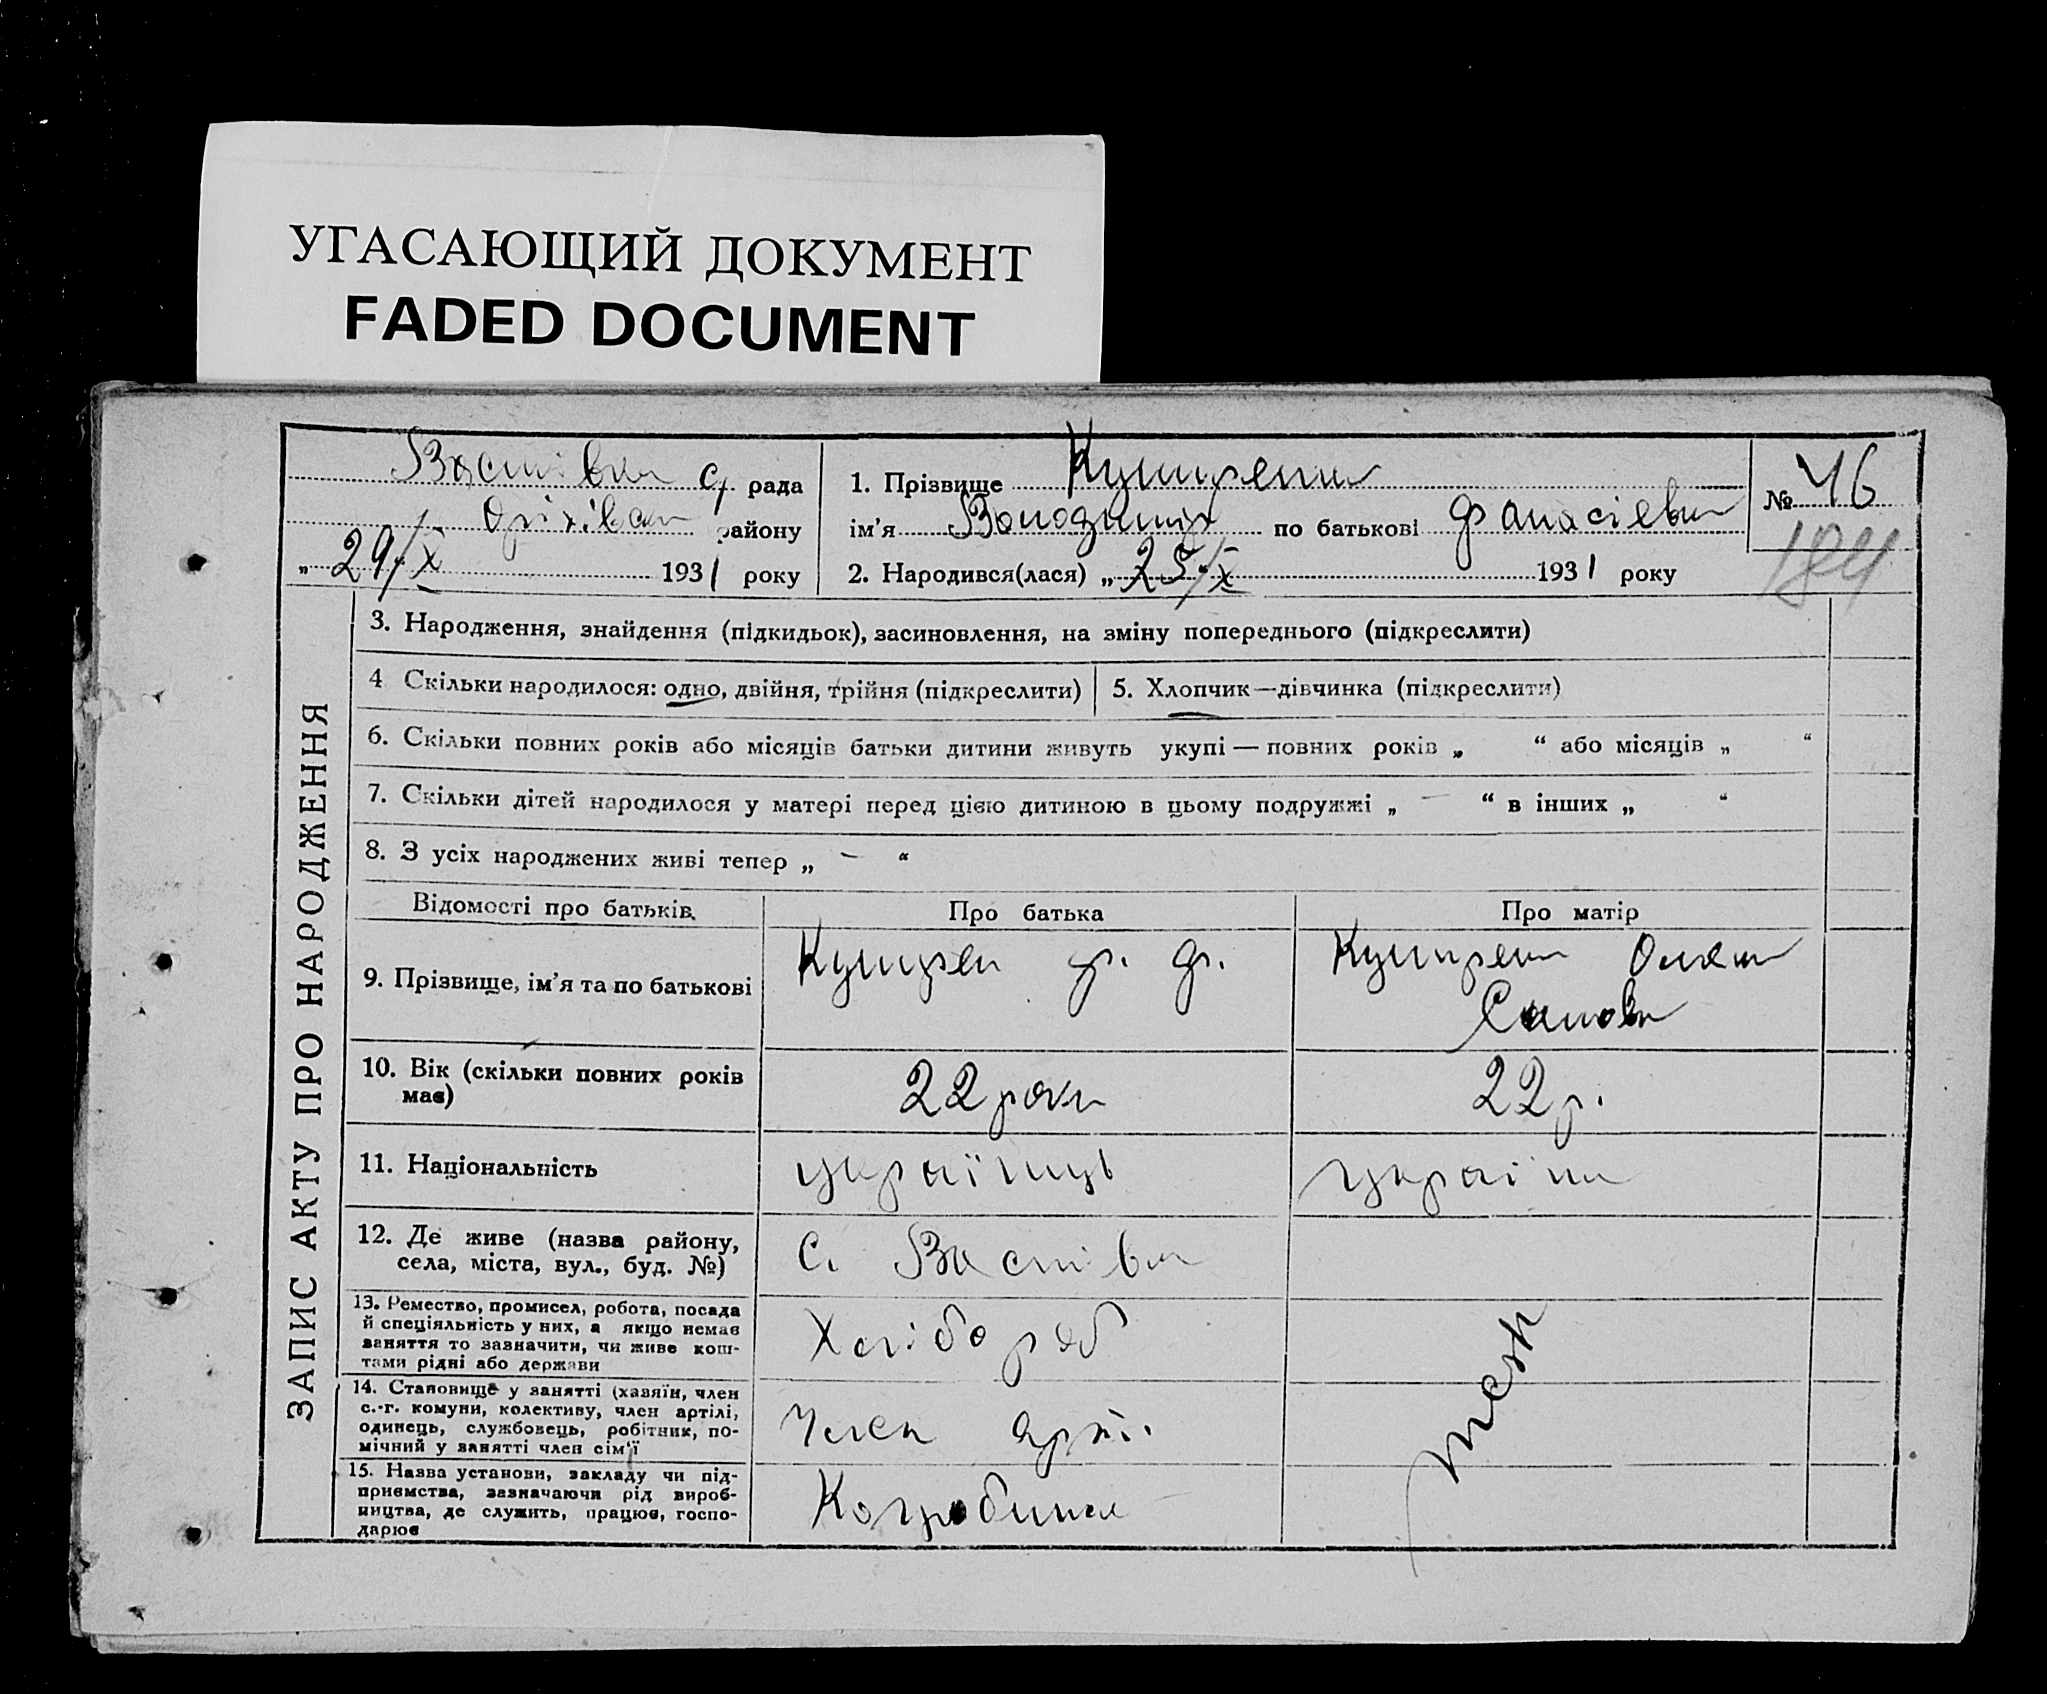 УГАСАЮЩИЙ ДОКУМЕНТ
FADED DOCUMENT
с/ рада
району
„ 29/X 1931 року
1. Прізвище
ім'я Володимир по батькові Фанасієвич
2. Народився(лася) „ 25/X 1931 року
№ 46
184
ЗАПИС АКТУ ПРО НАРОДЖЕННЯ
3. Народження, знайдення (підкидьок), засиновлення, на зміну попереднього (підкреслити)
4 Скільки народилося: одно, двійня, трійня (підкреслити)
5. Хлопчик—дівчинка (підкреслити)
6. Скільки повних років або місяців батьки дитини живуть укупі — повних років „ “ або місяців „ “
7. Скільки дітей народилося у матері перед цією дитиною в цьому подружжі „ — “ в інших „ “
8. З усіх народжених живі тепер „ — “
Відомості про батьків.
Про батька
Про матір
9. Прізвище, ім'я та по батькові
Ф. Ф.
10. Вік (скільки повних років
має)
22 роки
22 р.
11. Національність
українць
україн
12. Де живе (назва району,
села, міста, вул., буд. №)
С.
13. Ремество, промисел, робота, посада
й спеціяльність у них, а якщо немає
заняття то зазначити, чи живе кош-
тами рідні або держави
Хлібороб
14. Становище у занятті (хазяїн, член
с.-г. комуни, колективу, член артілі,
одинець, службовець, робітник, по-
мічний у занятті член сім'ї
Член арті.
15. Назва установи, закладу чи під-
приємства, зазначаючи рід вироб-
ництва, де служить, працює, госпо-
дарює